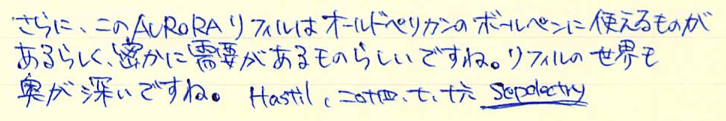 さらに、このAURORAリフィルはオールドペリカンのボールペンに使えるものが
あるらしく、密かに需要があるものらしいですね。リフィルの世界も
奥が深いですね。Hastil, 二〇十四、七、十六